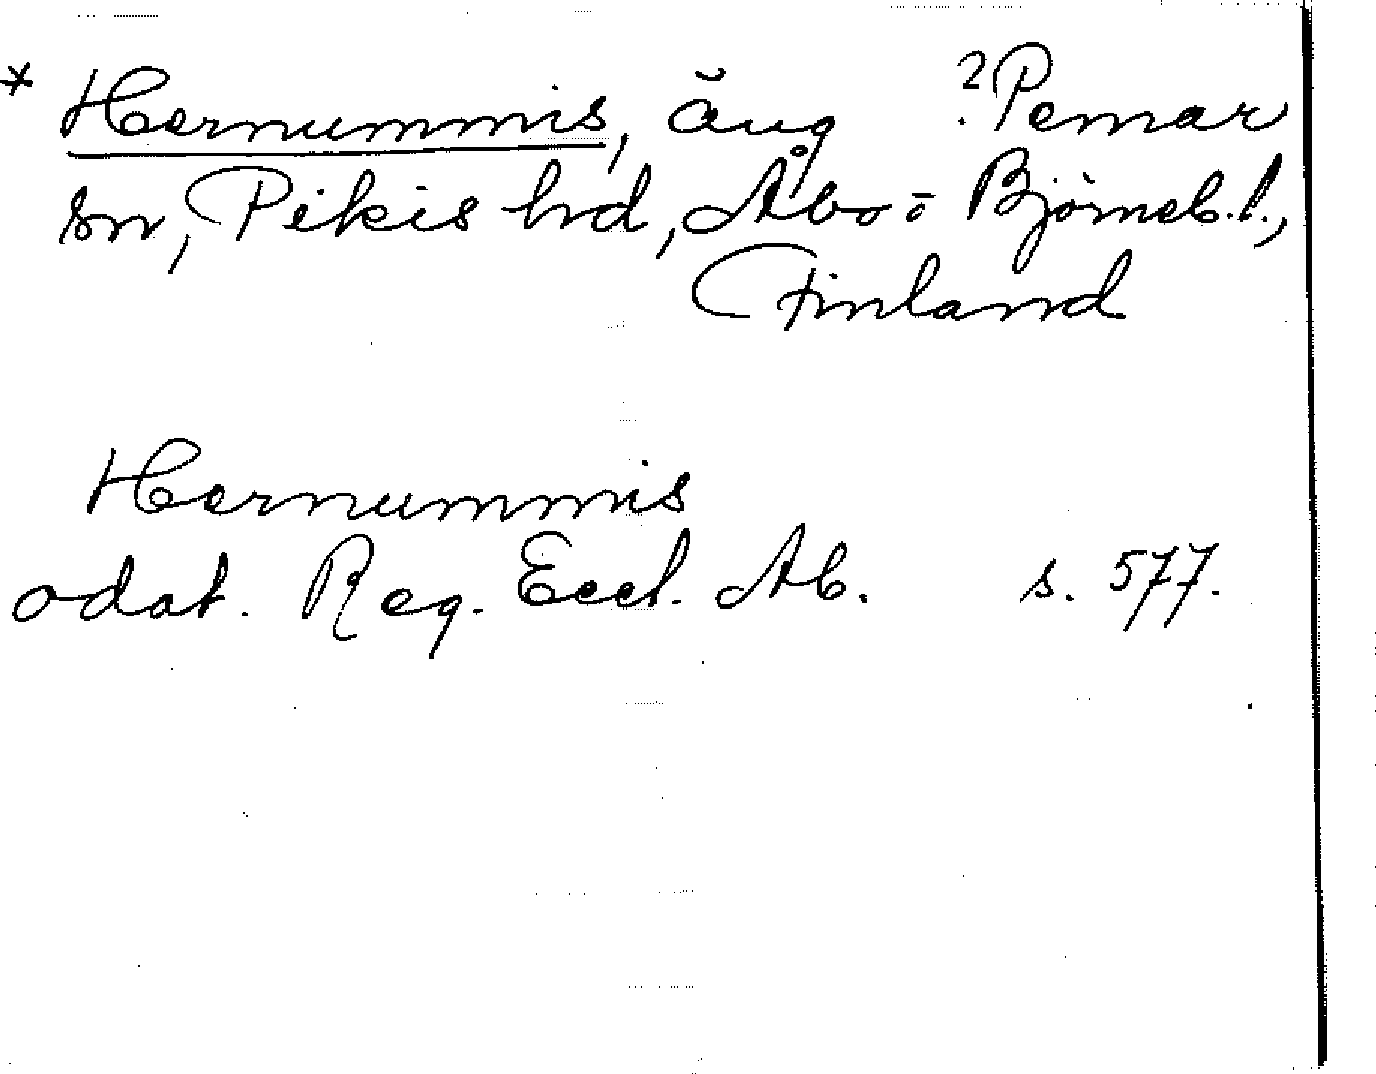 * Hernummis, äng ? Pemar
sn, Pikis hd, Åbo o Björneb. l.,
Finland
Hernummis
odat. Reg. Eccl. Ab. s. 577.